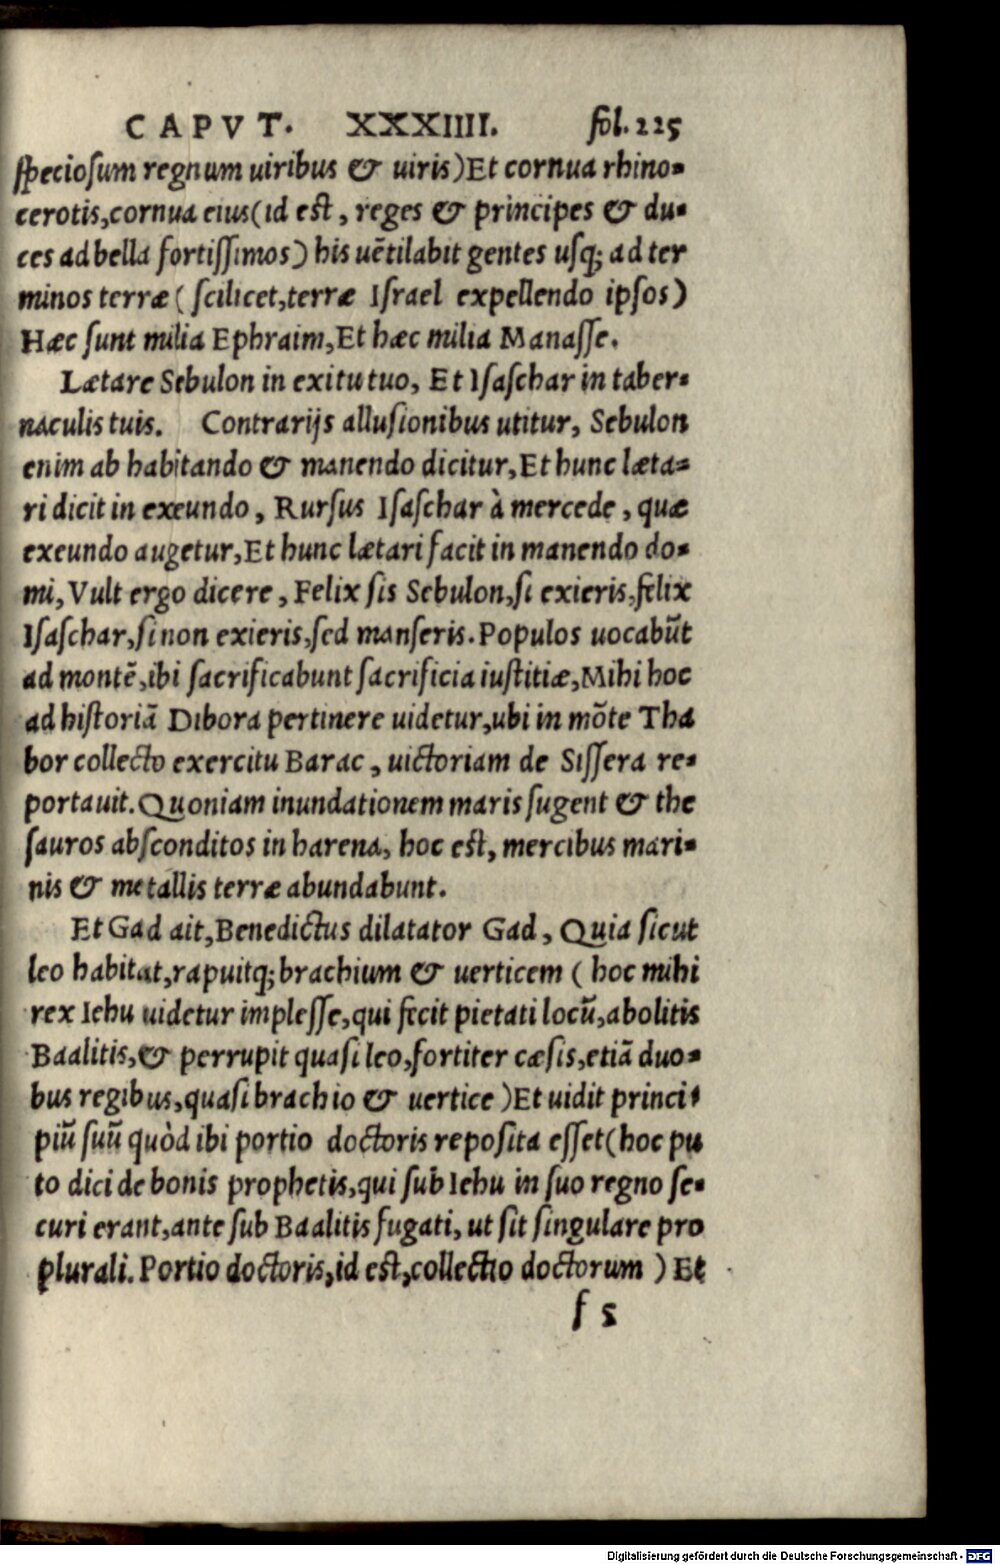 CAPVT. XXXIIII. fol. 225
ſpecioſum regnum uiribus & uiris) Et cornua rhino-
cerotis, cornua eius (id eſt, reges & principes & du-
ces ad bella fortiſſimos) his uētilabit gentes uſq; ad ter
minos terræ (ſcilicet, terræ Iſrael expellendo ipſos)
Hæc ſunt milia Ephraim, Et hæc milia Manaſſe.
Lætare Sebulon in exitu tuo, Et Iſaſchar in taber-
naculis tuis. Contrarijs alluſionibus utitur, Sebulon
enim ab habitando & manendo dicitur, Et hunc læta-
ri dicit in exeundo, Rurſus Iſaſchar à mercede, quæ
exeundo augetur, Et hunc lætari facit in manendo do-
mi, Vult ergo dicere, Felix ſis Sebulon, ſi exieris, felix
Iſaſchar, ſi non exieris, ſed manſeris. Populos uocabūt
ad montē, ibi ſacrificabunt ſacrificia iuſtitiæ, Mihi hoc
ad hiſtoriā Dibora pertinere uidetur, ubi in mōte Tha
bor collecto exercitu Barac, uictoriam de Siſſera re-
portauit. Quoniam inundationem maris ſugent & the
ſauros abſconditos in harena, hoc eſt, mercibus mari-
nis & metallis terræ abundabunt.
Et Gad ait, Benedictus dilatator Gad, Quia ſicut
leo habitat, rapuitq; brachium & uerticem (hoc mihi
rex Iehu uidetur impleſſe, qui fecit pietati locū, abolitis
Baalitis, & perrupit quaſi leo, fortiter cæſis, etiā duo-
bus regibus, quaſi brachio & uertice) Et uidit princi-
piū ſuū quòd ibi portio doctoris repoſita eſſet (hoc pu
to dici de bonis prophetis, qui ſub Iehu in ſuo regno ſe-
curi erant, ante ſub Baalitis fugati, ut ſit ſingulare pro
plurali. Portio doctoris, id eſt, collectio doctorum) Et
f 5
Digitalisierung gefördert durch die Deutsche Forschungsgemeinschaft - DFG